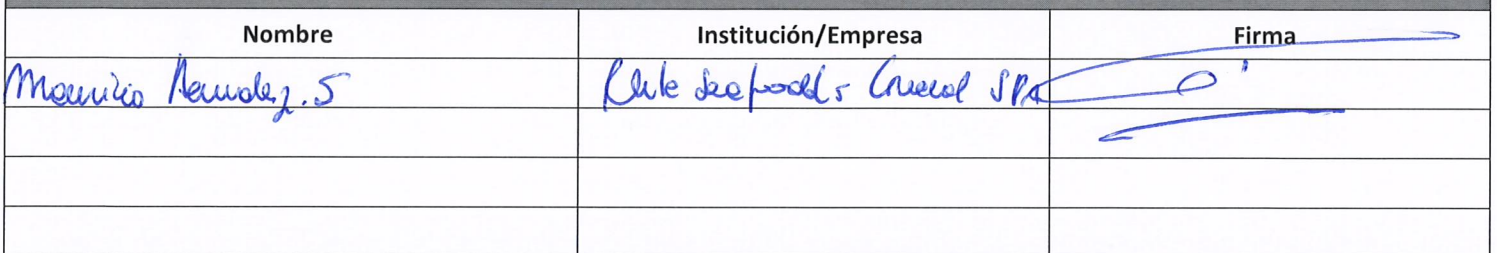 Nombre Institución/Empresa Firma
Mauricio Hernandez. S Chile Seafoods Comercial SPA